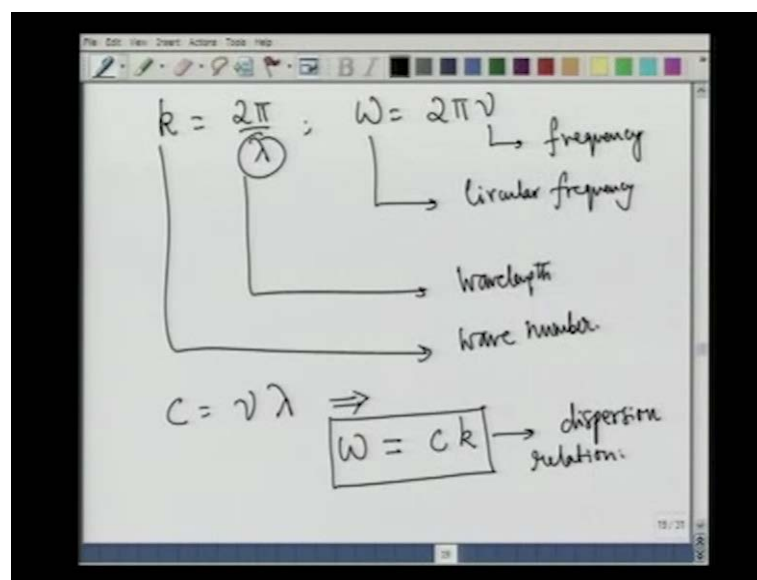 File Edit View Insert Actions Tools Help
B I
k = 2π/λ ; ω = 2πν
frequency
Circular frequency
wavelength
wave number.
c = νλ ⇒
ω = ck → dispersion
relation: